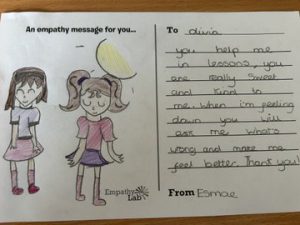 An empathy message for you...
To Olivia
you help me
in lessons, you
are really sweet
and kind to
me. when i'm feeling
down you will
ask me what's
wrong and make me
feel better. Thank you!
From Esmae
Empathy
Lab